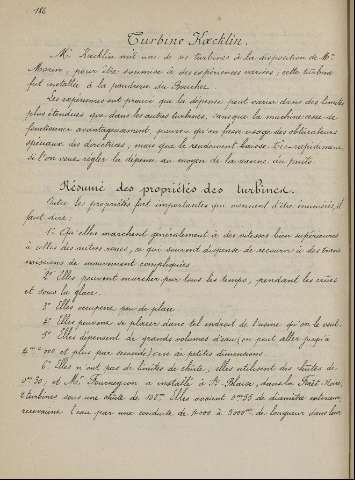 186
Turbine Kœcklin.
Mr. Kœcklin mit une de ses turbines à la disposition de Mr.
Morin, pour être soumise à des expériences variées; cette turbine
fut installée à la poudrerie du Bouchet.
Les expériences ont prouvé que la dépense peut varier dans des limites
plus étendues que dans les autres turbines, sans que la machine cesse de
fonctionner avantageusement, pourvu qu'on fasse usage des obturateurs
spéciaux des directrices; mais que le rendement baisse très-rapidement
si l'on veut régler la dépense au moyen de la vanne du puits.
Résumé des propriétés des turbines.
Outre les propriétés fort importantes qui viennent d'être énumérées, il
faut dire:
1º Qu'elles marchent généralement à des vitesses bien supérieures
à celles des autres roues, ce qui souvent dispense de recourir à des trans
missions de mouvement compliquées.
2º Elles peuvent marcher par tous les temps, pendant les crûes
et sous la glace.
3º Elles occupent peu de place.
4º Elles peuvent se placer dans tel endroit de l'usine qu'on le veut.
5º Elles dépensent de grands volumes d'eau (on peut aller jusqu'à
4mc 000 et plus par seconde) sous de petites dimensions.
6º Elles n'ont pas de limites de chute; elles utilisent des chutes de
0m30; et Mr. Fourneyron a installé à St Blaise, dans la Forêt-Noire,
2 turbines sous une chute de 108m. Elles avaient 0m55 de diamètre extérieur,
recevaient l'eau par une conduite de 4000 à 5000m de longueur dans leur